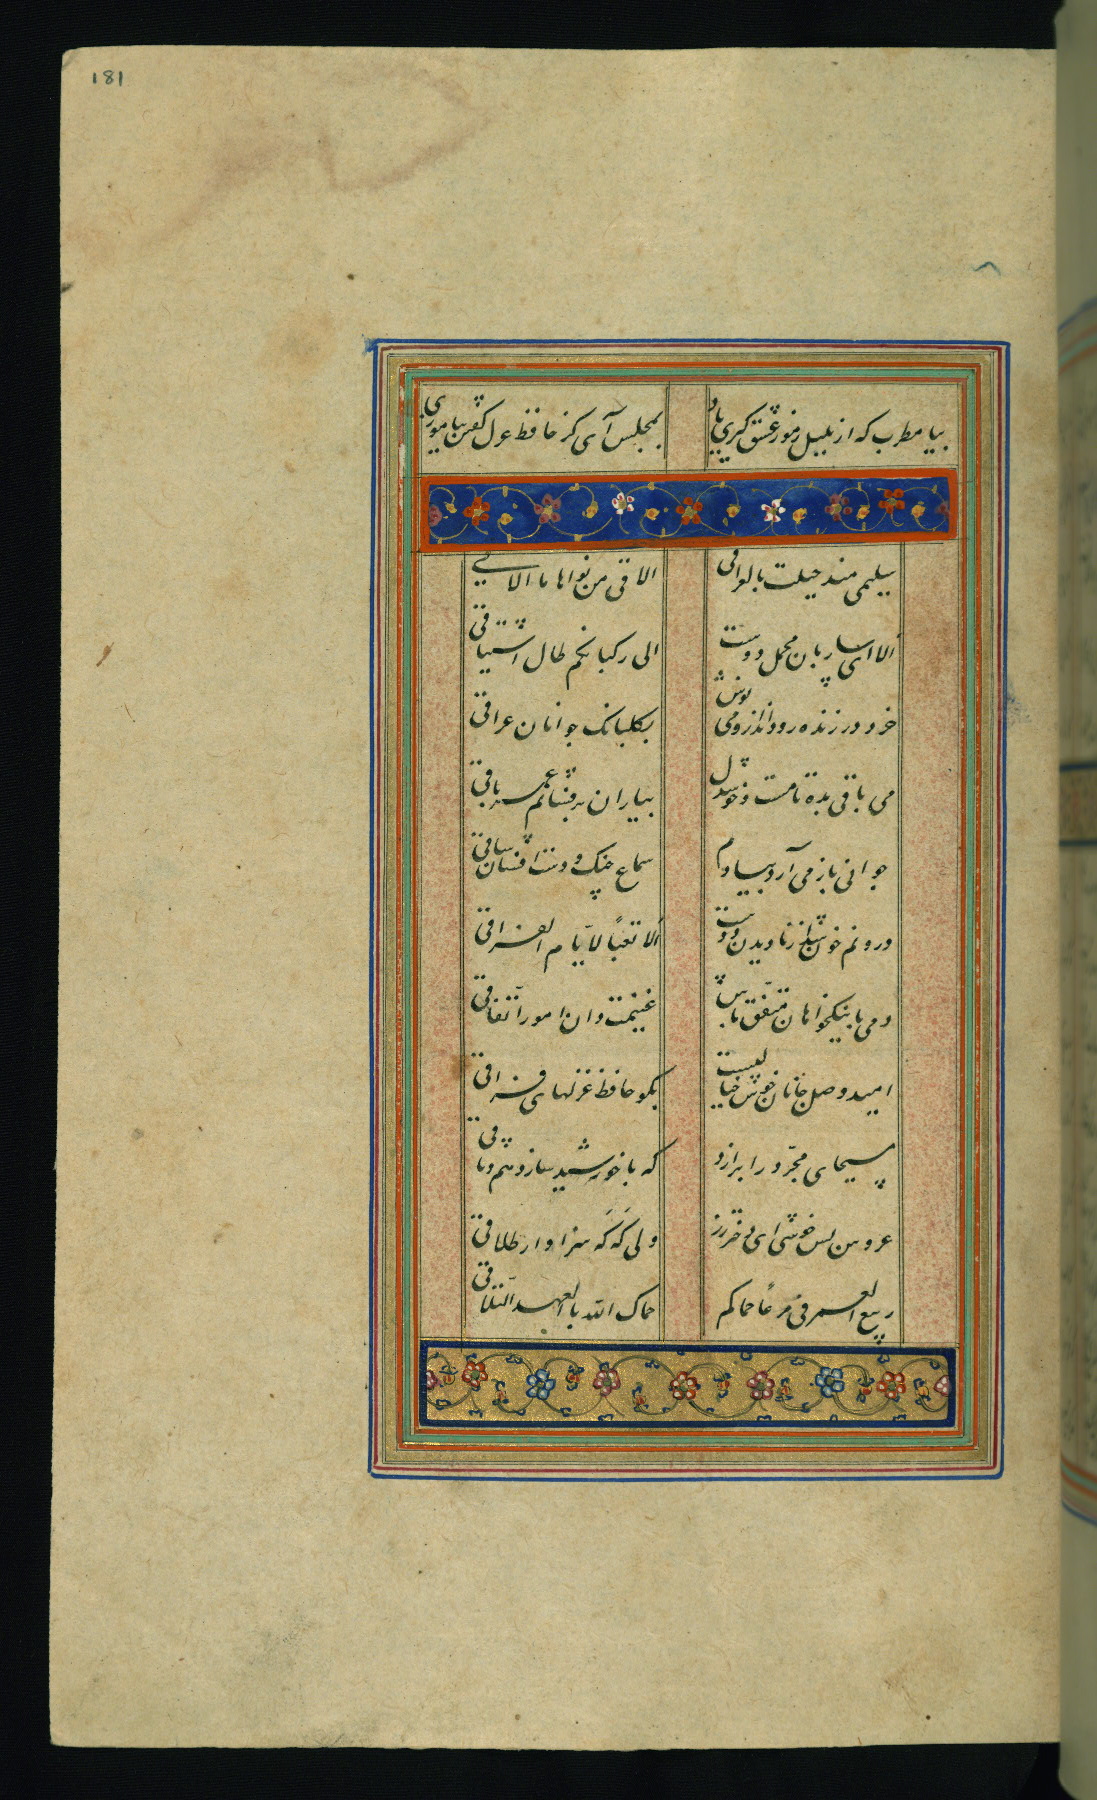 181
بیا مطرب که از بلبل رموز عشق گیری یاد بمجلس آی کز حافظ غزل گفتن بیاموزی
سلیمی منذ حلت بالعراقی الاقی من نواها ما الاقی
ألا ای ساربان محمل دوست الی رکبانکم طال اشتیاقی
خرد در زنده رود انداز و می نوش بکلبانک جوانان عراقی
می باقی بده تا مست و خوشدل بیاران برفشانم عمر باقی
جوانی باز می آرد بیادم سماع چنک و دست افشان ساقی
درونم خون شد از نادیدن دوست ألا تعبًا لأیّام الفراقی
دمی با نیکخواهان متّفق باش غنیمت دان امور اتّفاقی
امید وصل جانان خوش خیالیست بکو حافظ غزلهای فراقی
مسیحای مجرّد را برازد که با خورشید سازد هم وثاقی
عروس بس خوشی ای دختر رز ولی که که سزاوار طلاقی
ربیع العمر فی مرعا حماکم حماک الله یا العهد التّلاقی